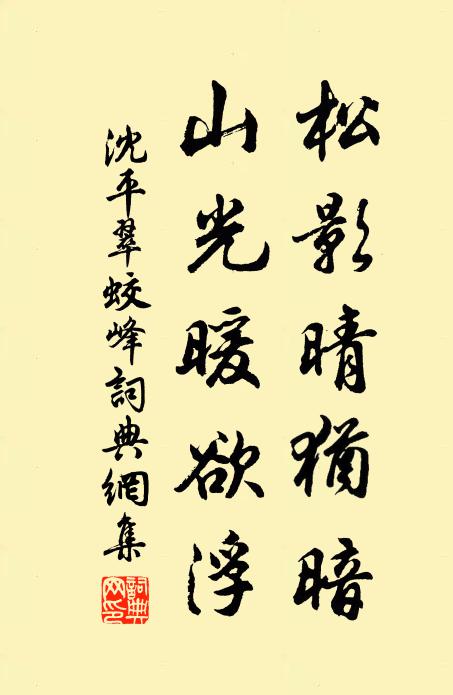 松影晴猶暗
山光暖欲浮
沈平翠蛟峰詞典網集
詞典網印